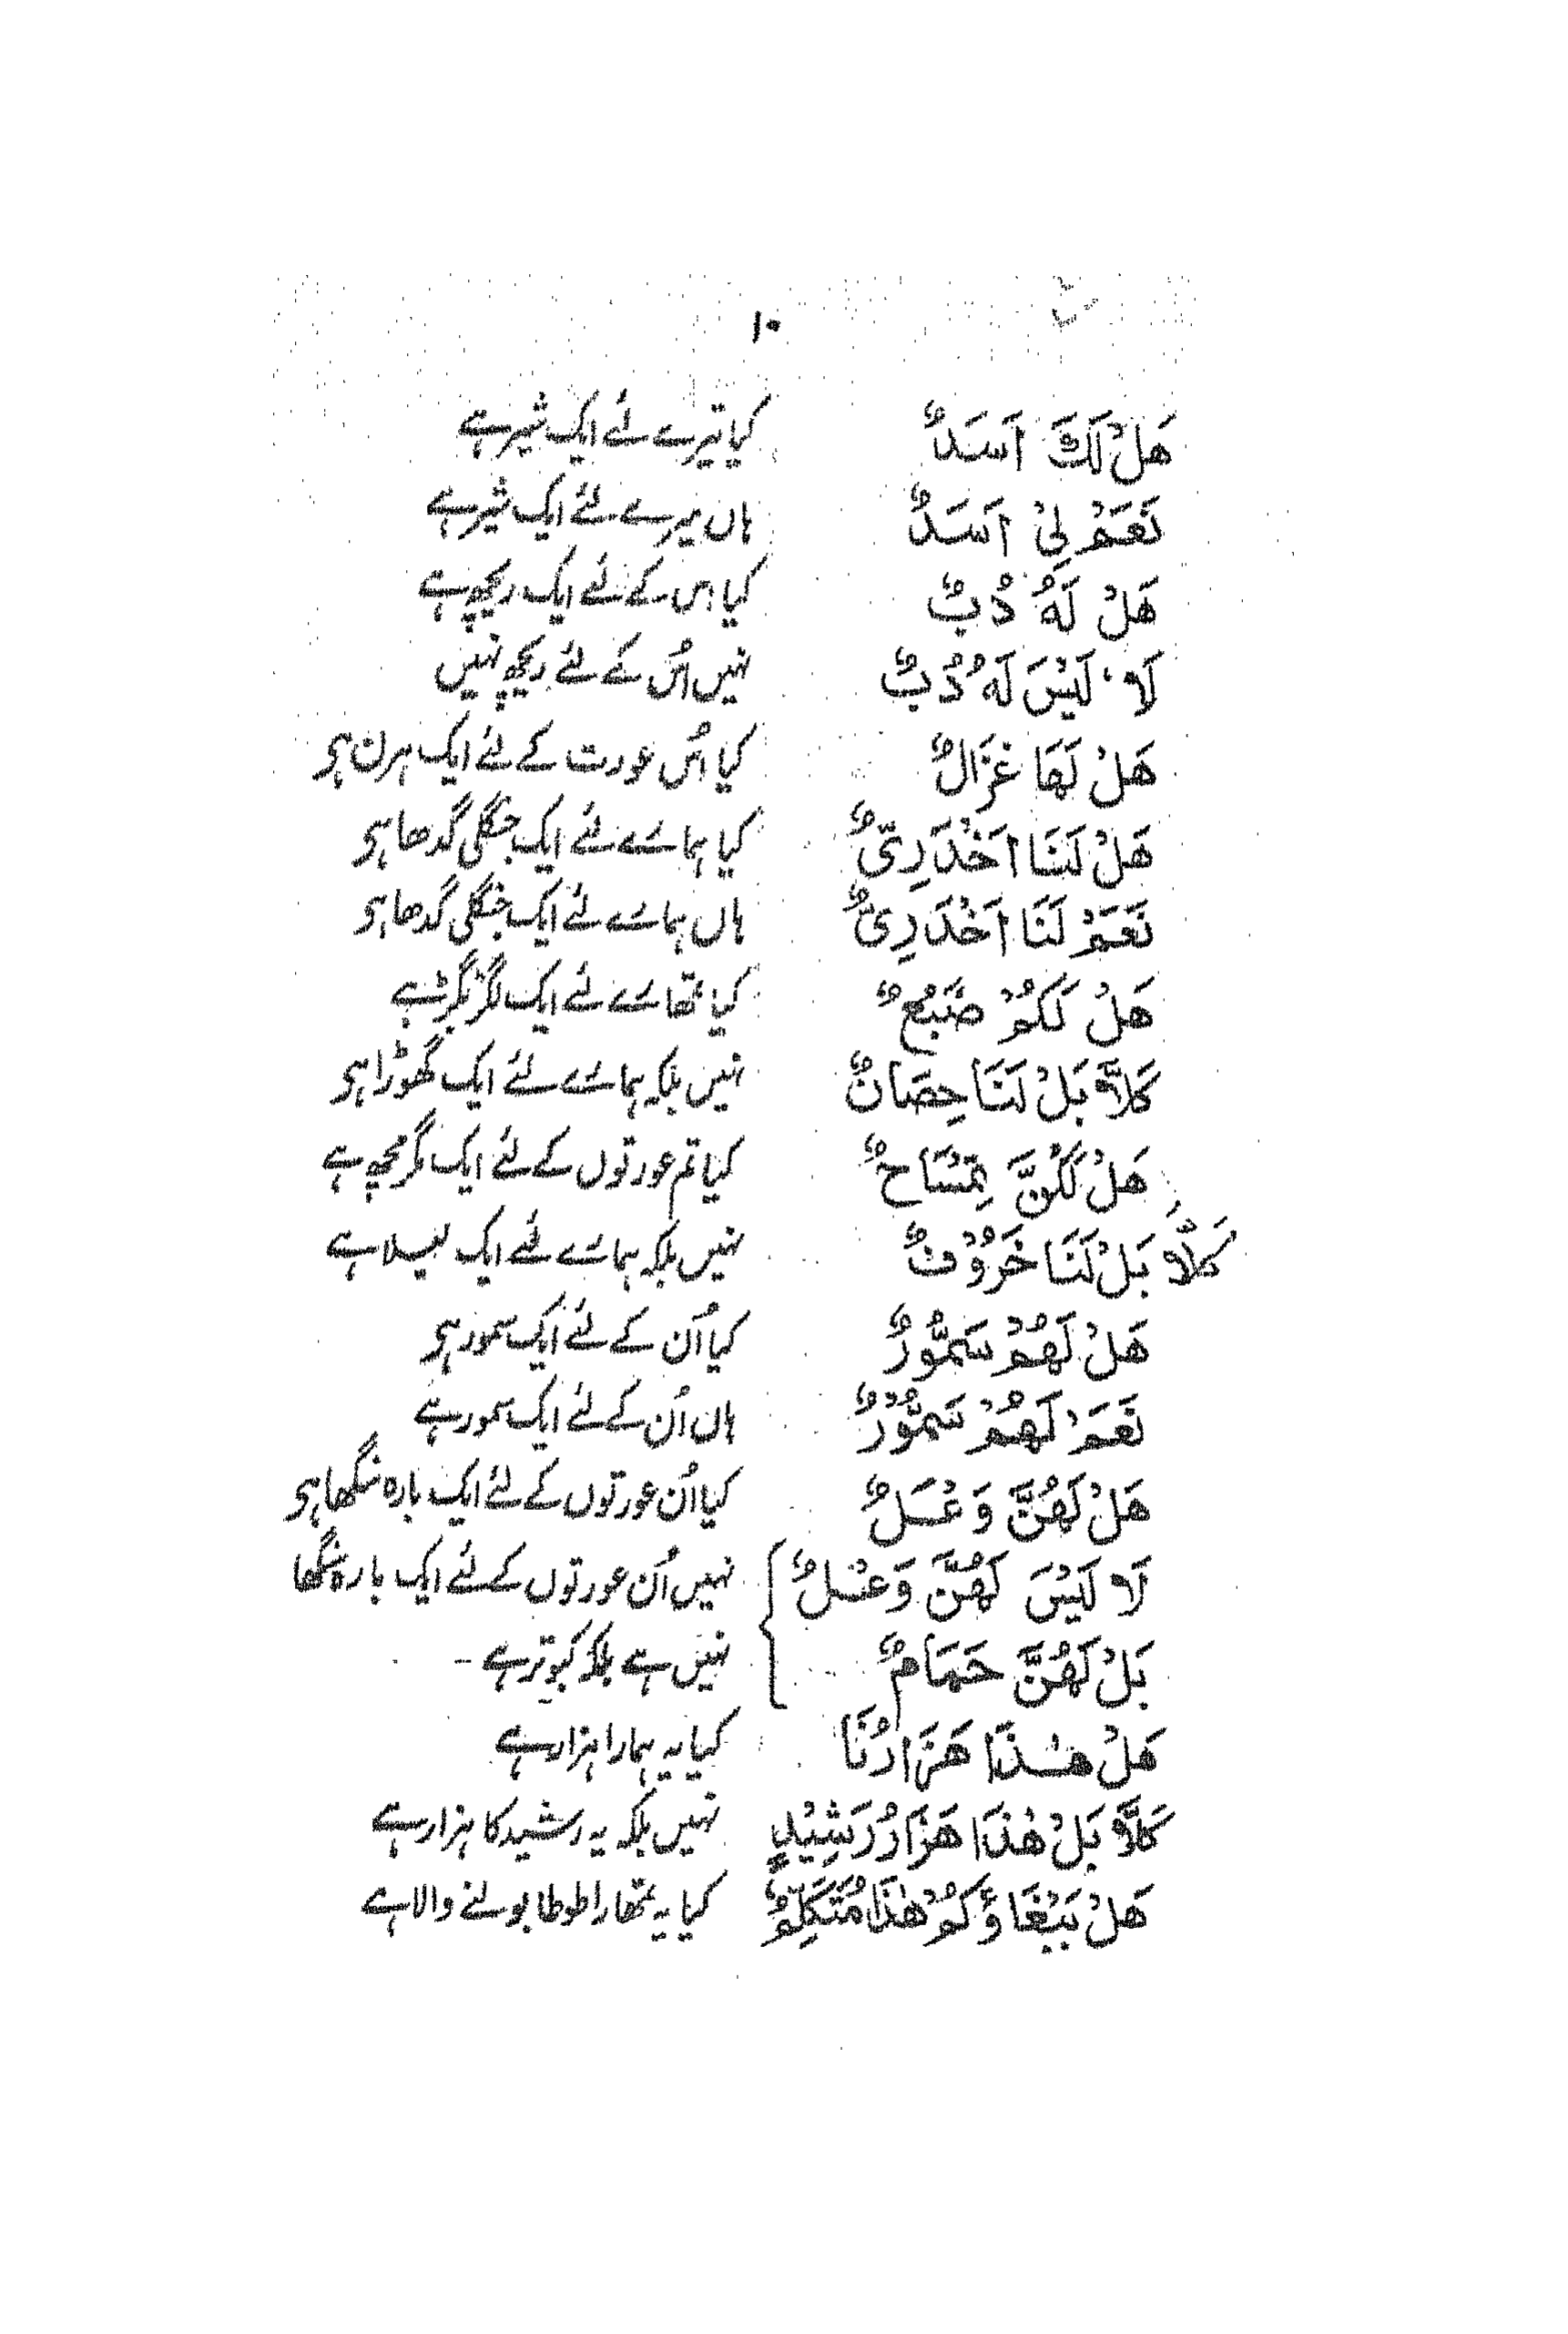 ۱۰
هَلْ لَكَ اَسَدٌ کیا تیرے لئے ایک شیر ہے
نَعَمْ لِیْ اَسَدٌ ہاں میرے لئے ایک شیر ہے
هَلْ لَهٗ دُبٌّ کیا اس کے لئے ایک ریچھ ہے
لَا، لَيْسَ لَهٗ دُبٌّ نہیں اُس کے لئے ریچھ نہیں
هَلْ لَهَا غَزَالٌ کیا اُس عورت کے لئے ایک ہرن ہی
هَلْ لَنَا اَخْدَرِیٌّ کیا ہمارے لئے ایک جنگلی گدھا ہی
نَعَمْ لَنَا اَخْدَرِیٌّ ہاں ہمارے لئے ایک جنگلی گدھا ہی
هَلْ لَكُمْ ضَبُعٌ کیا تمھارے لئے ایک لگڑبگڑ ہے
كَلَّا بَلْ لَنَا حِصَانٌ نہیں بلکہ ہمارے لئے ایک گھوڑا ہی
هَلْ لَكُنَّ تِمْسَاحٌ کیا تم عورتوں کے لئے ایک مگرمچھ ہے
كَلَّا بَلْ لَنَا خَرُوْفٌ نہیں بلکہ ہمارے لئے ایک ہے
هَلْ لَهُمْ سَمُّوْرٌ کیا اُن کے لئے ایک سمور ہی
نَعَمْ لَهُمْ سَمُّوْرٌ ہاں اُن کے لئے ایک سمور ہے
هَلْ لَهُنَّ وَعْلٌ کیا اُن عورتوں کے لئے ایک بارہ سنگھا ہی
لَا لَيْسَ لَهُنَّ وَعْلٌ نہیں اُن عورتوں کے لئے ایک بارہ سنگھا
بَلْ لَهُنَّ حَمَامٌ نہیں ہے بلکہ کبوتر ہے -
هَلْ هٰذَا هَزَارُنَا کیا یہ ہمارا ہزار ہے
كَلَّا بَلْ هٰذَا هَزَارُ رَشِيْدٍ نہیں بلکہ یہ رشید کا ہزار ہے
هَلْ بَبْغَاؤُكُمْ هٰذَا مُتَكَلِّمٌ کیا یہ تمھارا طوطا بولنے والا ہے